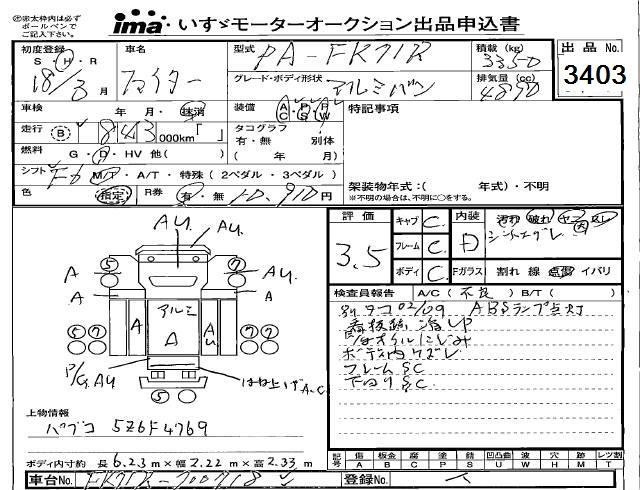 Ⓙ※太枠内は必ず
ボールペンで
ご記入下さい。
ima いすゞモーターオークション出品申込書
初度登録 車名 型式 PA-FK71R 積載(kg) 3350 出品No.
S・H・R 18/3月 ファイター グレード・ボディ形状 アルミバン 排気量(cc) 4890 3403
車検 年・月・抹消 装備 AC・PS・PW 特記事項
走行 B 843 000km「 」 タコグラフ
有・無 別体
燃料 G・D・HV 他( ) ( 年 月)
シフト F6 M/T・A/T・特殊(2ペダル・3ペダル)
架装物年式:( 年式)・不明
色 指定 R券 有・無 10,910円 ※不明の場合は、不明に○をする。
評価 キャブ C. 内装 汚れ 破れ ヤニ ズレ
3.5 フレーム C. D
ボディ C Fガラス 割れ 線 点傷 イバリ
AU. AU.
⑤ ⑦ AU.
A A
⑤⑦ A アルミ A AU ⑦⑦
P/G AU はね上げ A.C
⑤
検査員報告 A/C(不良)B/T( )
別タコ 02/09 ABSランプ点灯
看板跡 冶UP
オイルにじみ
ボデー内ウズレ
フレームSC
下回りSC
上物情報
パブコ 5Z6F4769
ボディ内寸約 長 6.23 m×幅 2.22 m×高 2.33 m
記号 傷 板金 腐 塗 錆 凹凸曲 波 穴 跡 レツ割
A B C P S U W H M T
車台No. FK71R-700718 登録No.